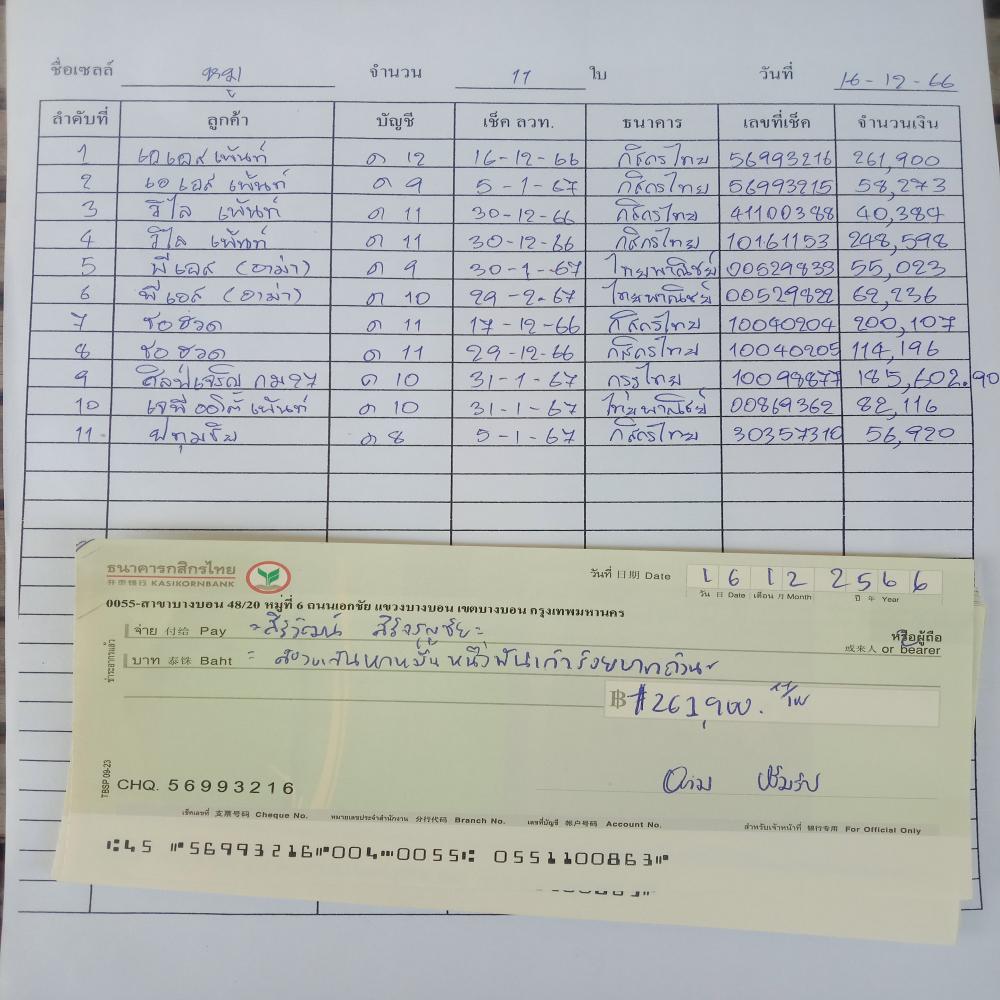 ชื่อเซลล์ หมู จำนวน 11 ใบ วันที่ 16-12-66
ลำดับที่ ลูกค้า บัญชี เช็ค ลวท. ธนาคาร เลขที่เช็ค จำนวนเงิน
1 เอเอส เพ้นท์ ด 12 16-12-66 กสิกรไทย 56993216 261,900
2 เอเอส เพ้นท์ ด 9 5-1-67 กสิกรไทย 56993215 58,273
3 วิไล เพ้นท์ ด 11 30-12-66 กสิกรไทย 41100388 40,384
4 วิไล เพ้นท์ ด 11 30-12-66 กสิกรไทย 10161153 248,598
5 พีเอส (อาม่า) ด 9 30-1-67 ไทยพาณิชย์ 00529833 55,023
6 พีเอส (อาม่า) ด 10 29-2-67 ไทยพาณิชย์ 00529822 62,236
7 ชอฮวด ด 11 17-12-66 กสิกรไทย 10040204 200,107
8 ชอฮวด ด 11 29-12-66 กสิกรไทย 10040205 114,196
9 ศิลป์เจริญ กม27 ด 10 31-1-67 กรุงไทย 10098877 185,602.90
10 เจพี ออโต้ เพ้นท์ ด 10 31-1-67 ไทยพาณิชย์ 00869362 82,116
11 ปทุมชัย ด 8 5-1-67 กสิกรไทย 30357310 56,920
ธนาคารกสิกรไทย
开泰银行 KASIKORNBANK
วันที่ 日期 Date 1 6 1 2 2 5 6 6
วัน 日 Date เดือน 月 Month ปี 年 Year
0055-สาขาบางบอน 48/20 หมู่ที่ 6 ถนนเอกชัย แขวงบางบอน เขตบางบอน กรุงเทพมหานคร
จ่าย 付给 Pay =สิริวัฒน์ สิริจรูญชัย= หรือผู้ถือ
或来人 or bearer
บาท 泰铢 Baht = สองแสนหกหมื่นหนึ่งพันเก้าร้อยบาทถ้วน
฿ #261,900.
TBSP 09-23
CHQ. 56993216
เช็คเลขที่ 支票号码 Cheque No. หมายเลขประจำสำนักงาน 分行代码 Branch No. เลขที่บัญชี 帐户号码 Account No. สำหรับเจ้าหน้าที่ 银行专用 For Official Only
⑆45 ⑈56993216⑈004⑉0055⑆ 0551100863⑈